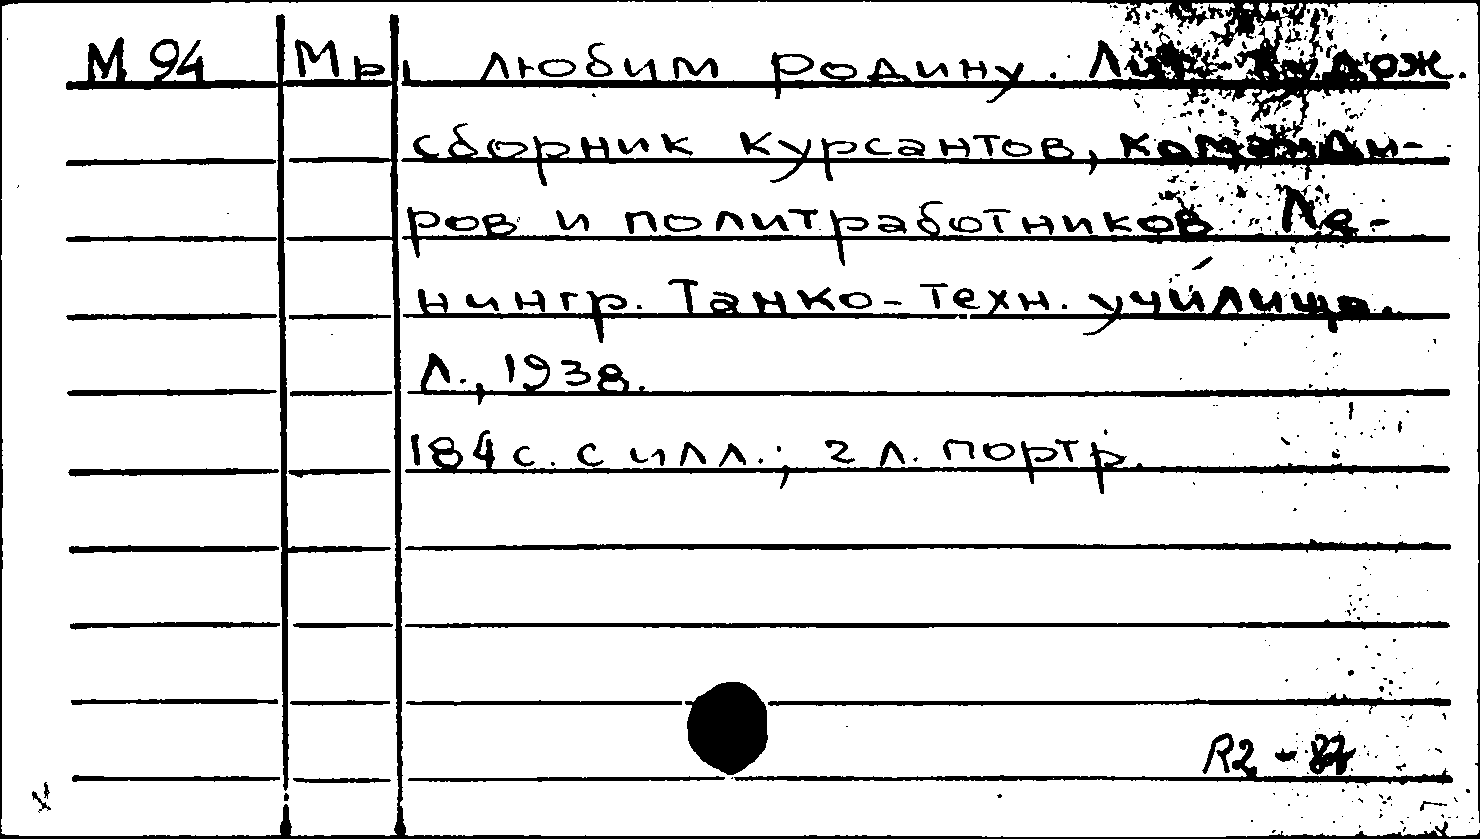 М 94 Мы любим родину. Лит. худож.
сборник курсантов, команди-
ров и политработников Ле-
нингр. Танко-техн. училища.
Л., 1938.
184 с. с илл.; 2 л. портр.
R2 -